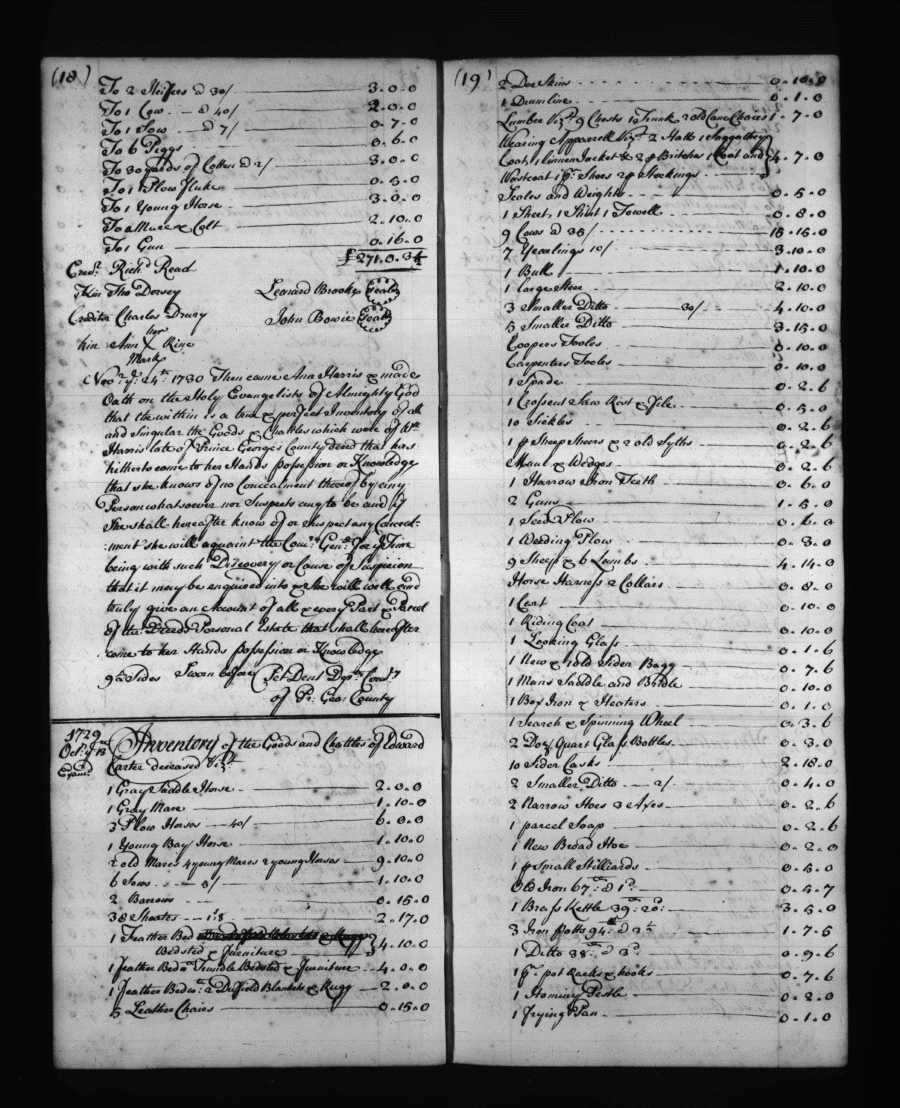 (18)
To 2 Heifers @ 30/ 3.0.0
To 1 Cow @ 40/ 2.0.0
To 1 Sow @ 7/ 0.7.0
To 6 Piggs 0.6.0
To 30 yards of Cotten @ 2/ 3.0.0
To 1 Plow Fluke 0.5.0
To 1 Young Horse 3.0.0
To a Mare & Colt 2.10.0
To 1 Gun 0.16.0
£271.0.3¼
Credr Richd Read
Kin Tho Dorsey Leonard Brooke Seale
Creditor Charles Drury John Bowie Seale
her
Kin Ann X King
Mark
Novr ye 24th 1730 Then came Ann Harris & made
Oath on the Holy Evangelists of Almighty God
that the within is a true & perfect Inventory of all
and Singular the Goods & Chattles which were of Wm
Harris late of Prince George's County decd that has
hitherto come to her Hands possession or Knowledge
that she knows of no Concealment thereof by any
Person whatsoever nor Suspects any to be and if
She shall hereafter know of or suspect any Conceal-
ment she will aquaint the Comy Genl for ye Time
being with such Discovery or Cause of Suspicion
that it may be enquired into & She will well and
truly give an Account of all & every Part & Parcel
of the Decds Personal Estate that shall hereafter
come to her Hands possession or Knowledge
9 Sides Sworn before Pet Dent Dpty Comry
of Pr: Geor County
1729
Octr ye
Inventory of the Goods and Chattles of Edward
Carter deceased Vizt
1 Gray Saddle Horse 2.0.0
1 Gray Mare 1.10.0
3 Plow Horses 40/ 6.0.0
1 Young Bay Horse 1.10.0
2 old Mares 4 young Mares 2 young Horses 9.10.0
6 Sows 5/ 1.10.0
2 Barrows 0.15.0
38 Shoates 1s.6 2.17.0
1 Feather Bed
Bedsted & furniture 4.10.0
1 feather Bed Trundle Bedsted & furniture 4.0.0
1 feather Bed wt 2 Duffield Blankets & Rugg 2.0.0
5 Leather Chairs 0.15.0
(19)
2 Doe Skins 0.10.0
1 Drumline 0.1.0
Lumber Vizt 9 Chests 1 Trunk 2 old Cane Chaires 1.7.0
Wearing Apparrell Vizt 2 Hatts 1 Saggathey
Coat, 1 linnen Jacket & 2 pr Britches 1 Coat and 4.7.0
Wastcoat 1 pr Shoes 2 pr Stockings
Scales and Weights 0.5.0
1 Sheet, 1 Shirt 1 Towell 0.8.0
9 Cows @ 35/ 15.15.0
7 Yearlings 10/ 3.10.0
1 Bull 1.10.0
1 large Steer 2.10.0
3 Smaller Ditto 30/ 4.10.0
5 Smaller Ditto 3.15.0
Coopers Tooles 0.10.0
Carpenters Tooles 0.10.0
1 Spade 0.2.6
1 Crosscut Saw Rest & file 0.5.0
10 Sickles 0.2.6
1 pr Sheep Sheers & 2 old Syths 0.2.6
Maul & Wedges 0.2.6
1 Harrow Iron Teeth 0.6.0
2 Guns 1.5.0
1 Seed Plow 0.6.0
1 Weeding Plow 0.3.0
9 Sheep & 6 Lambs 4.14.0
Horse Harness 2 Collars 0.8.0
1 Cart 0.10.0
1 Riding Coat 0.10.0
1 Looking Glass 0.1.6
1 New & 1 old Sider Bagg 0.7.6
1 Mans Saddle and Bridle 0.10.0
1 Box Iron & Heaters 0.1.0
1 Search & Spinning Wheel 0.3.6
2 Doz Quart Glass Bottles 0.3.0
10 Sider Casks 2.18.0
2 Smaller Ditto 2/ 0.4.0
2 Narrow Hoes 3 Axes 0.2.6
1 parcel Soap 0.2.6
1 New Broad Hoe 0.2.0
1 pr Small Stilliards 0.5.0
Old Iron 67 @ 1d 0.5.7
1 Brass Kettle 39 20d 3.5.0
3 Iron Potts 94 1.7.5
1 Ditto 38 @ 3d 0.9.6
1 pr pot Racks & hooks 0.7.6
1 Hominy Pestle 0.2.0
1 frying Pan 0.1.0